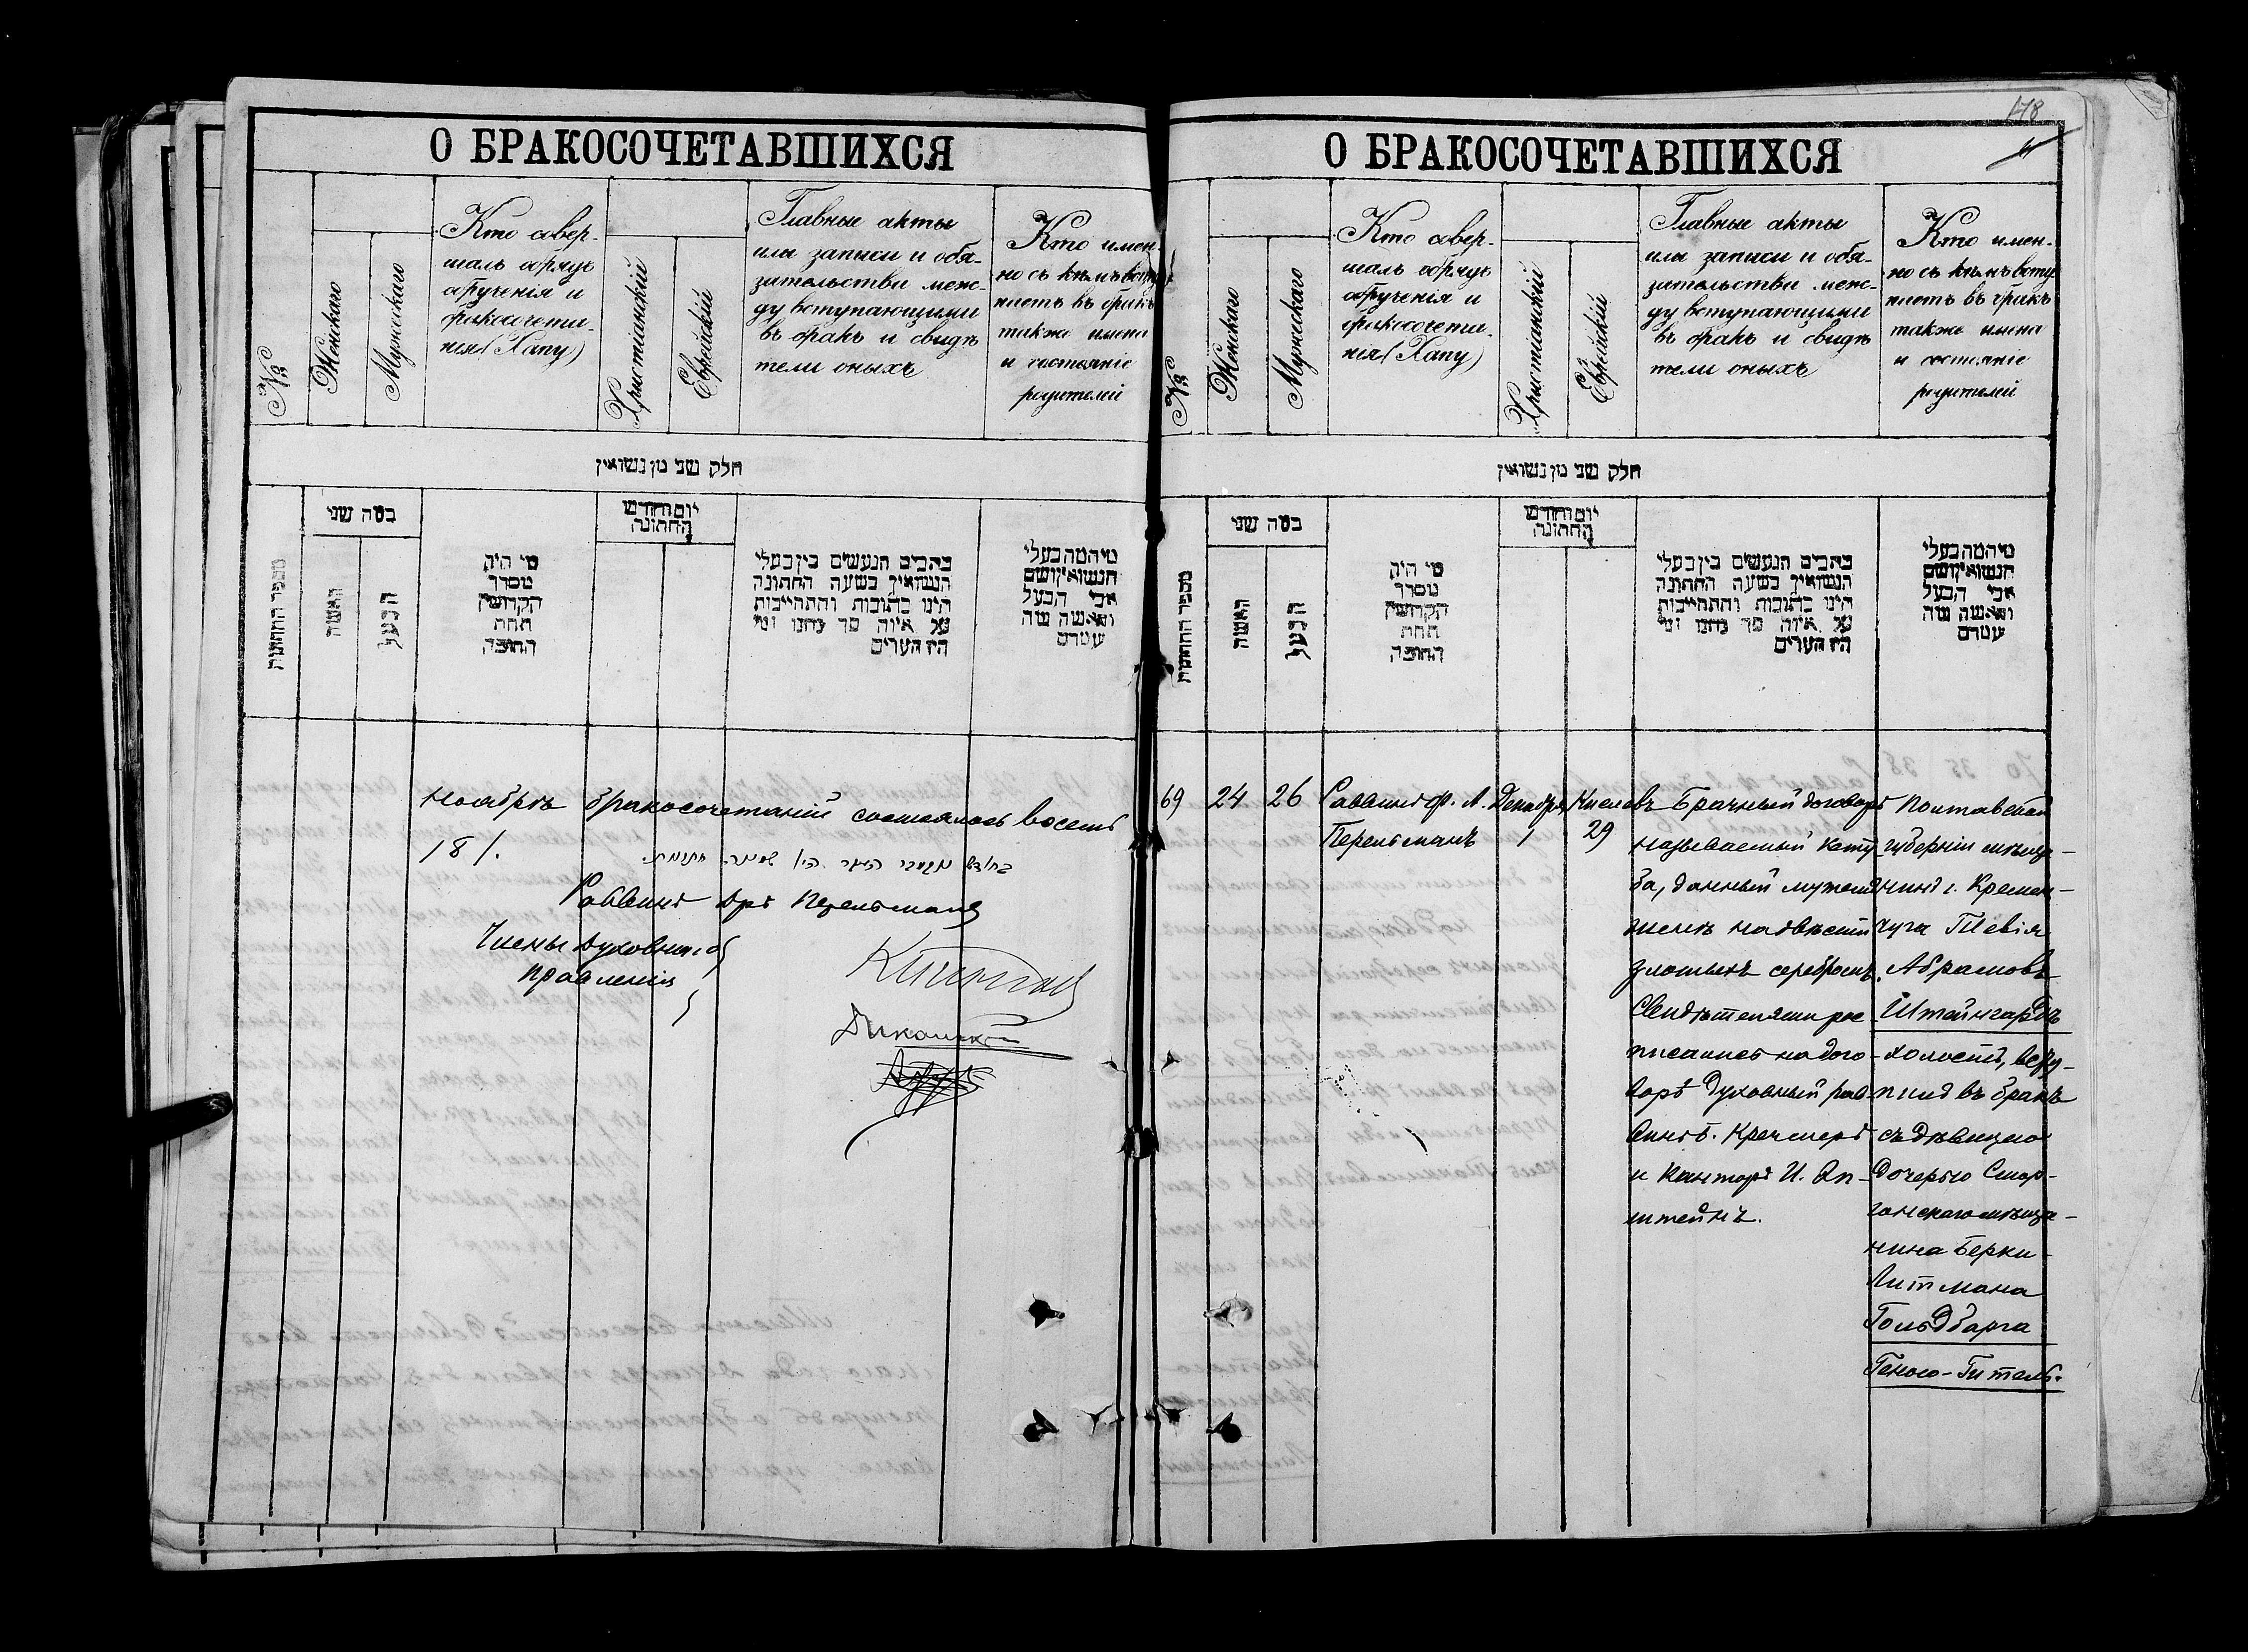 О БРАКОСОЧЕТАВШИХСЯ
№
Женскаго
Мужескаго
Кто совер-
шалъ обрядъ
обрученія и
бракосочета-
нія (Хапу)
Христіанскій
Еврейскій
Главные акты
или записи и обя-
зательства меж-
ду вступающими
въ бракъ и свидѣ
тели оныхъ
Кто имен-
но съ кѣмъ всту-
паетъ въ бракъ
также имена
и состояніе
родителей
חלק שני מן נשואין
מספר החתונות
כמה שני
האשה
הבעל
מי היה
מסדר
הקדושין
תחת
החופה
יום וחדש
החתונה
כתבים הנעשים בין בעלי
הנשואין בשעה החתונה
היינו כתובות והתחייבות
על איזה סך
הן העדים
מי המה בעלי
הנשואין ושם
אבי הבעל
והאשה ומה
Ноябрѣ бракосочетаній состоялось восемь
/8/.
Раввинъ Арѣ Перельманъ
Члены духовнаго
правленія
178
О БРАКОСОЧЕТАВШИХСЯ
№
Женскаго
Мужескаго
Кто совер-
шалъ обрядъ
обрученія и
бракосочета-
нія (Хапу)
Христіанскій
Еврейскій
Главные акты
или записи и обя-
зательства меж-
ду вступающими
въ бракъ и свидѣ
тели оныхъ
Кто имен-
но съ кѣмъ всту-
паетъ въ бракъ
также имена
и состояніе
родителей
חלק שני מן נשואין
מספר החתונות
כמה שני
האשה
הבעל
מי היה
מסדר
הקדושין
תחת
החופה
יום וחדש
החתונה
כתבים הנעשים בין בעלי
הנשואין בשעה החתונה
היינו כתובות והתחייבות
על איזה סך
הן העדים
מי המה בעלי
הנשואין ושם
אבי הבעל
והאשה ומה
69
24
26
Раввинъ А.
Перельманъ
Декабря
1
Кислевъ
29
Брачный договоръ
называемый кету-
ба, данный мужемъ
женѣ на двѣсти
злотыхъ серебромъ.
Свидѣтелями рос-
писались на дого-
ворѣ духовный рав-
винъ Б. Кречмеръ
и канторъ И. Эп-
штейнъ.
Полтавской
губерніи мѣща-
нинъ г. Кремен-
чуга Тевія
Абрамовъ
Штейнгардъ
холостъ, всту-
пилъ въ бракъ
съ дѣвицею
дочерью Смор-
гонскаго мѣща-
нина Берки-
Литмана
Гольдбарга
Геною-Гитель.